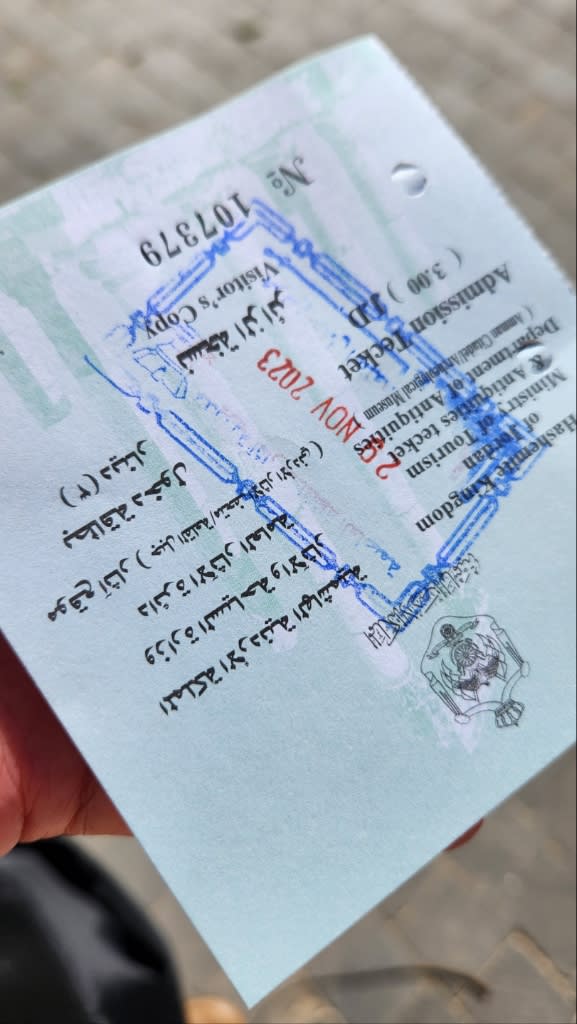 المملكة الأردنية الهاشمية
وزارة السياحة والآثار
دائرة الآثار العامة
موقع آثار ( جبل القلعة/متحف الآثار الأردني )
بطاقة دخول
(٣) دينار
نسخة الزائر
Hashemite Kingdom
of Jordan
Ministry of Tourism
& Antiquities
Department of Antiquities
tecket
( Amman Citadel/Archaeological Museum
Admission Tecket
( 3.00 ) JD
Visitor's Copy
28 NOV 2023
No 107379